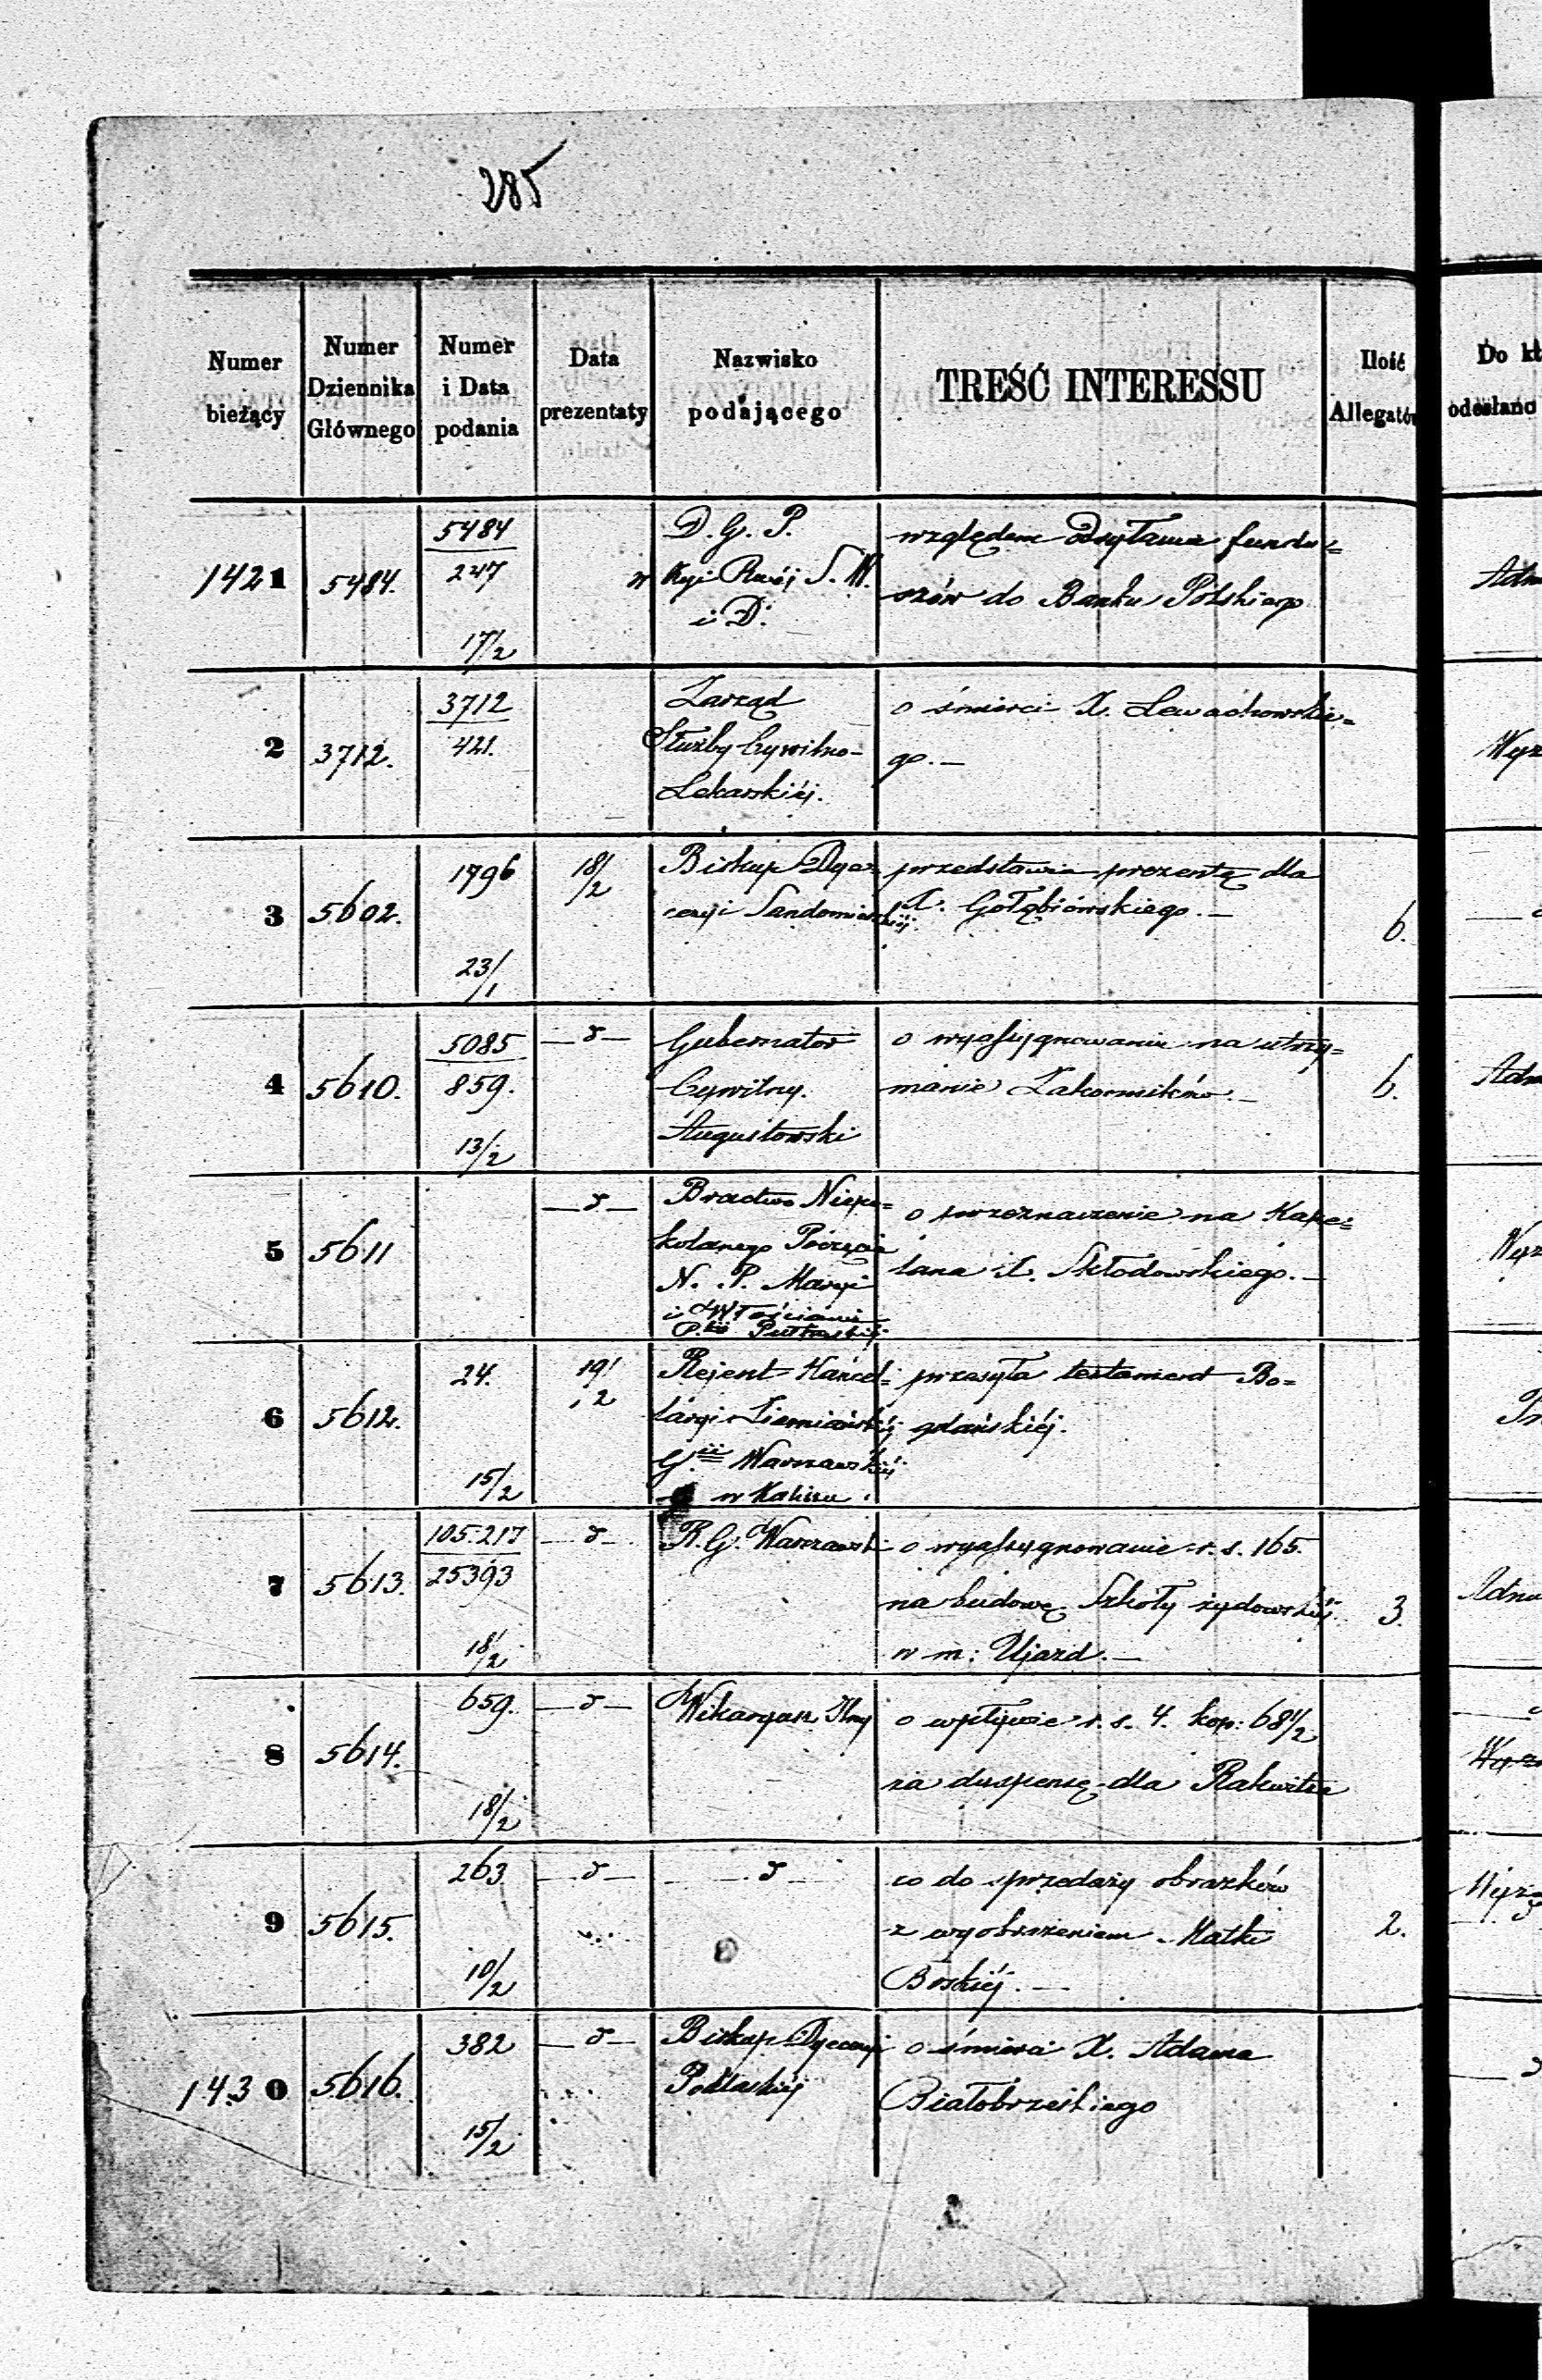 285
Numer bieżący
Numer Dziennika Głównego
Numer i Data podania
Data prezentaty
Nazwisko podającego
TREŚĆ INTERESSU
Ilość Allegató
Do kt
odesłano
1421 5484. 5484/247 17/2
D. G. P.
w Kyi Rząj S. W.
i D.
względem odsyłania fundu=
szów do Banku Polskiego
Adm
2 3712. 3712/421.
Zarząd
Służby Cywilno-
Lekarskiéj.
o śmierci X. Lewachowskie=
go. —
Wyz
3 5602. 1796 23/1 18/2
Biskup Dye=
cezyi Sandomierskiéj.
przedstawia prezentę dla
X. Gołębiówskiego. —
6.
4 5610. 5085/859. 13/2 — d —
Gubernator
Cywilny.
Augustowski
o wyassygnowanie na utrzy=
manie Zakonników. —
6.
Adm
5 5611 — d —
Bractwo Niepo=
kolanego Poczęcia
N. P. Maryi
i Włościanie
P.kii Pułtuskiéj
o przeznaczenie na Kape=
lana X. Skłodowskiego. —
Wyz
6 5612. 24. 15/2 19/2
Rejent Kancel=
laryi Ziemiańskiéj
G.ii Warszawskiéj
w Kaliszu.
przesyła testament Bo=
gdańskiéj.
7 5613. 105.217/25393 18/2 — d —
R. G. Warszawski
o wyassygnowanie r. s. 165.
na budowę Szkoły żydowskiéj
w m: Ujazd. —
3.
Adm
8 5614. 659. 18/2 — d —
Wikaryusz Jlny
o wpływie r. s. 4. kop: 68 1/2
za dyspensę dla Rakwitza
9 5615. 263. 10/2 — d — — d —
co do sprzedaży obrazków
z wyobrażeniem Matki
Boskiéj. —
2.
Wyz
1430 5616. 382 15/2 — d —
Biskup Dyecezyi
Podlaskiéj
o śmierci X. Adama
Białobrzeskiego